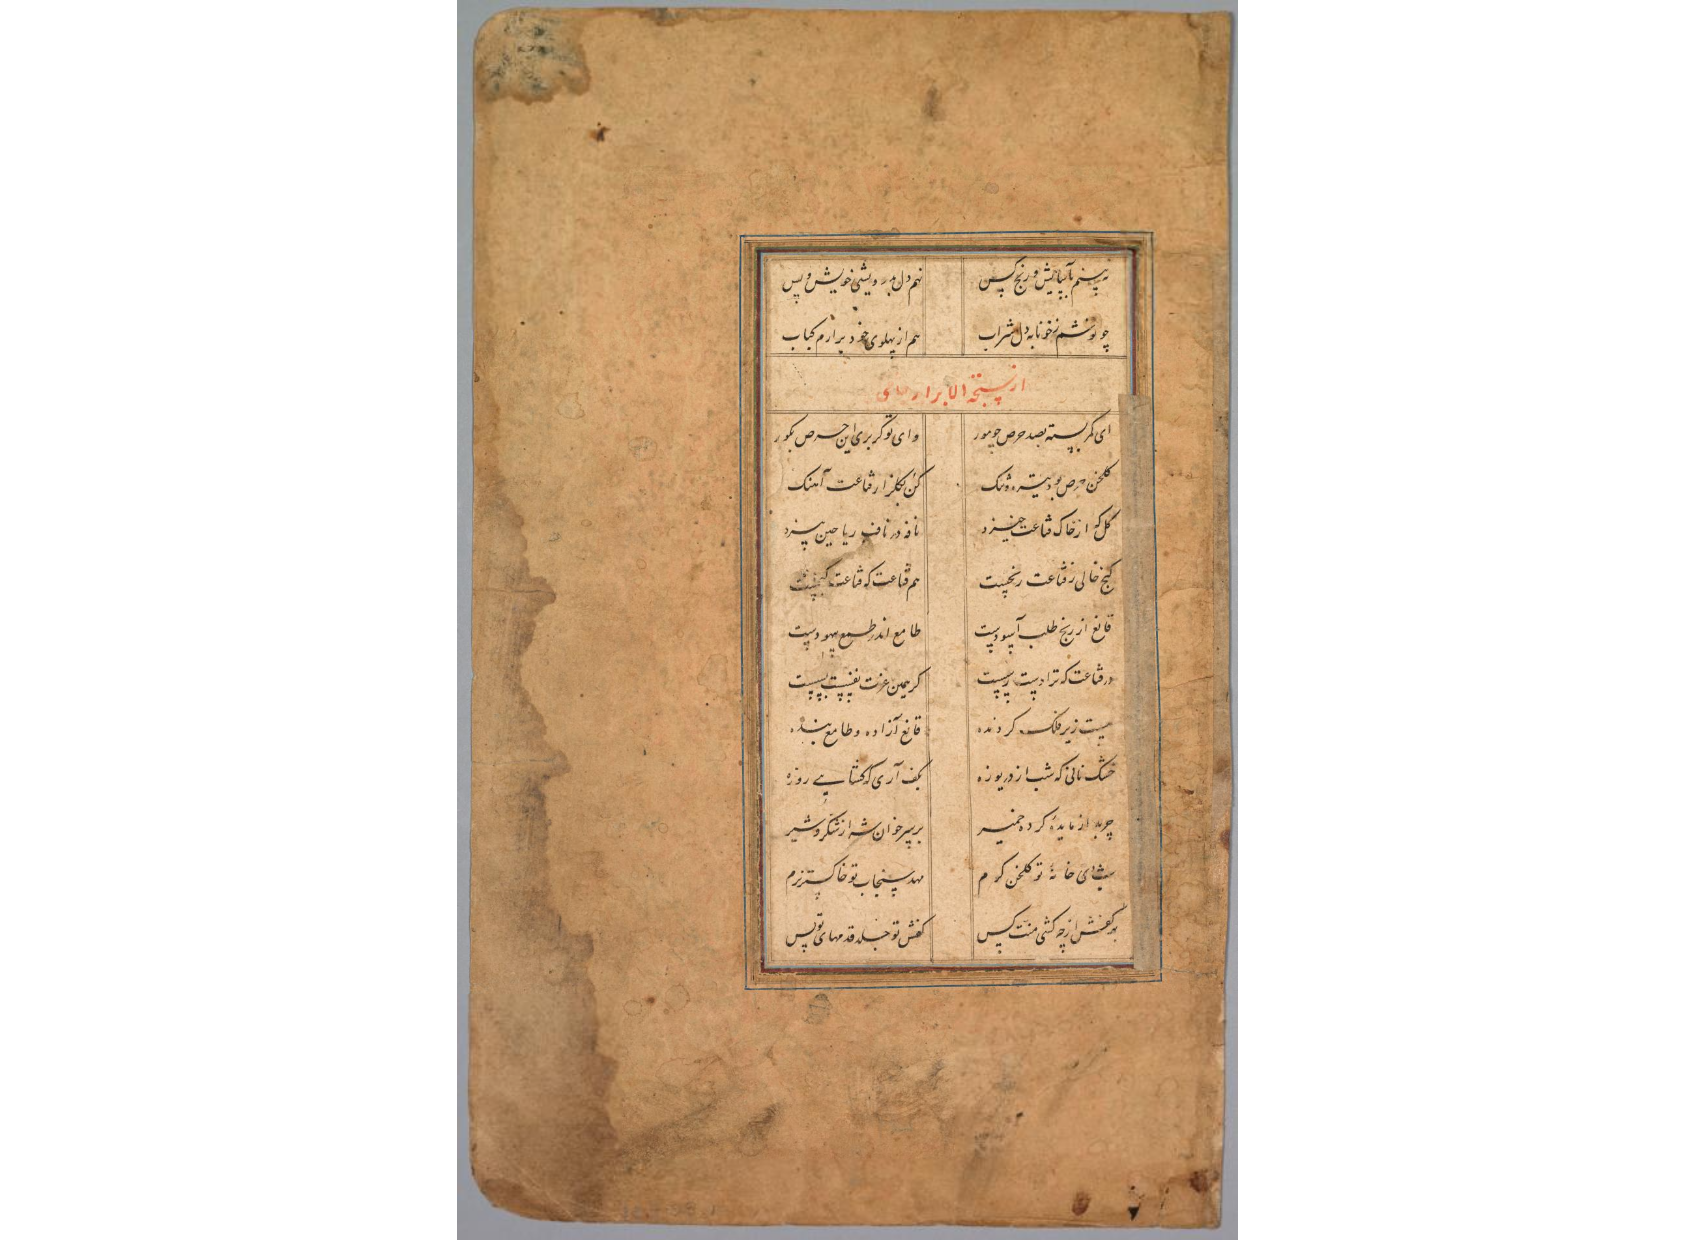 نه پیچم بآسایش و رنج کس نهم دل بدرویشی خویش و بس
چو نوشم ز خونابه دل شراب هم از پهلوی خود برارم کباب
از سبحة الابرار جامی
ای کمر بسته بصد حرص چو مور وای تو گر بری این حرص بکور
کلخن حرص بود تیره و تنک کن بکلزار قناعت آهنک
کل که از خاک قناعت خیزد نافه در ناف ریاحین بیزد
کنج خالی ز قناعت رنجست هم قناعت که قناعت کنجست
قانع از رنج طلب آسودست طامع اندر طمع بیهودست
در قناعت که ترا دست رسست کر همین عزت نفست بسست
نیست زیر فلک کردنده قانع آزاده و طامع بنده
خشک نانی که شب از دریوزه بکف آری که کشایی روزه
چربد از مایدهٔ کرده خمیر بر سر خوان شه از شکر و شیر
شب شدی خانهٔ تو کلخن کرم مهد سنجاب تو خاکستر نرم
بهر کفش از چه کشی منت کس کفش تو جلد قدمهای تو بس